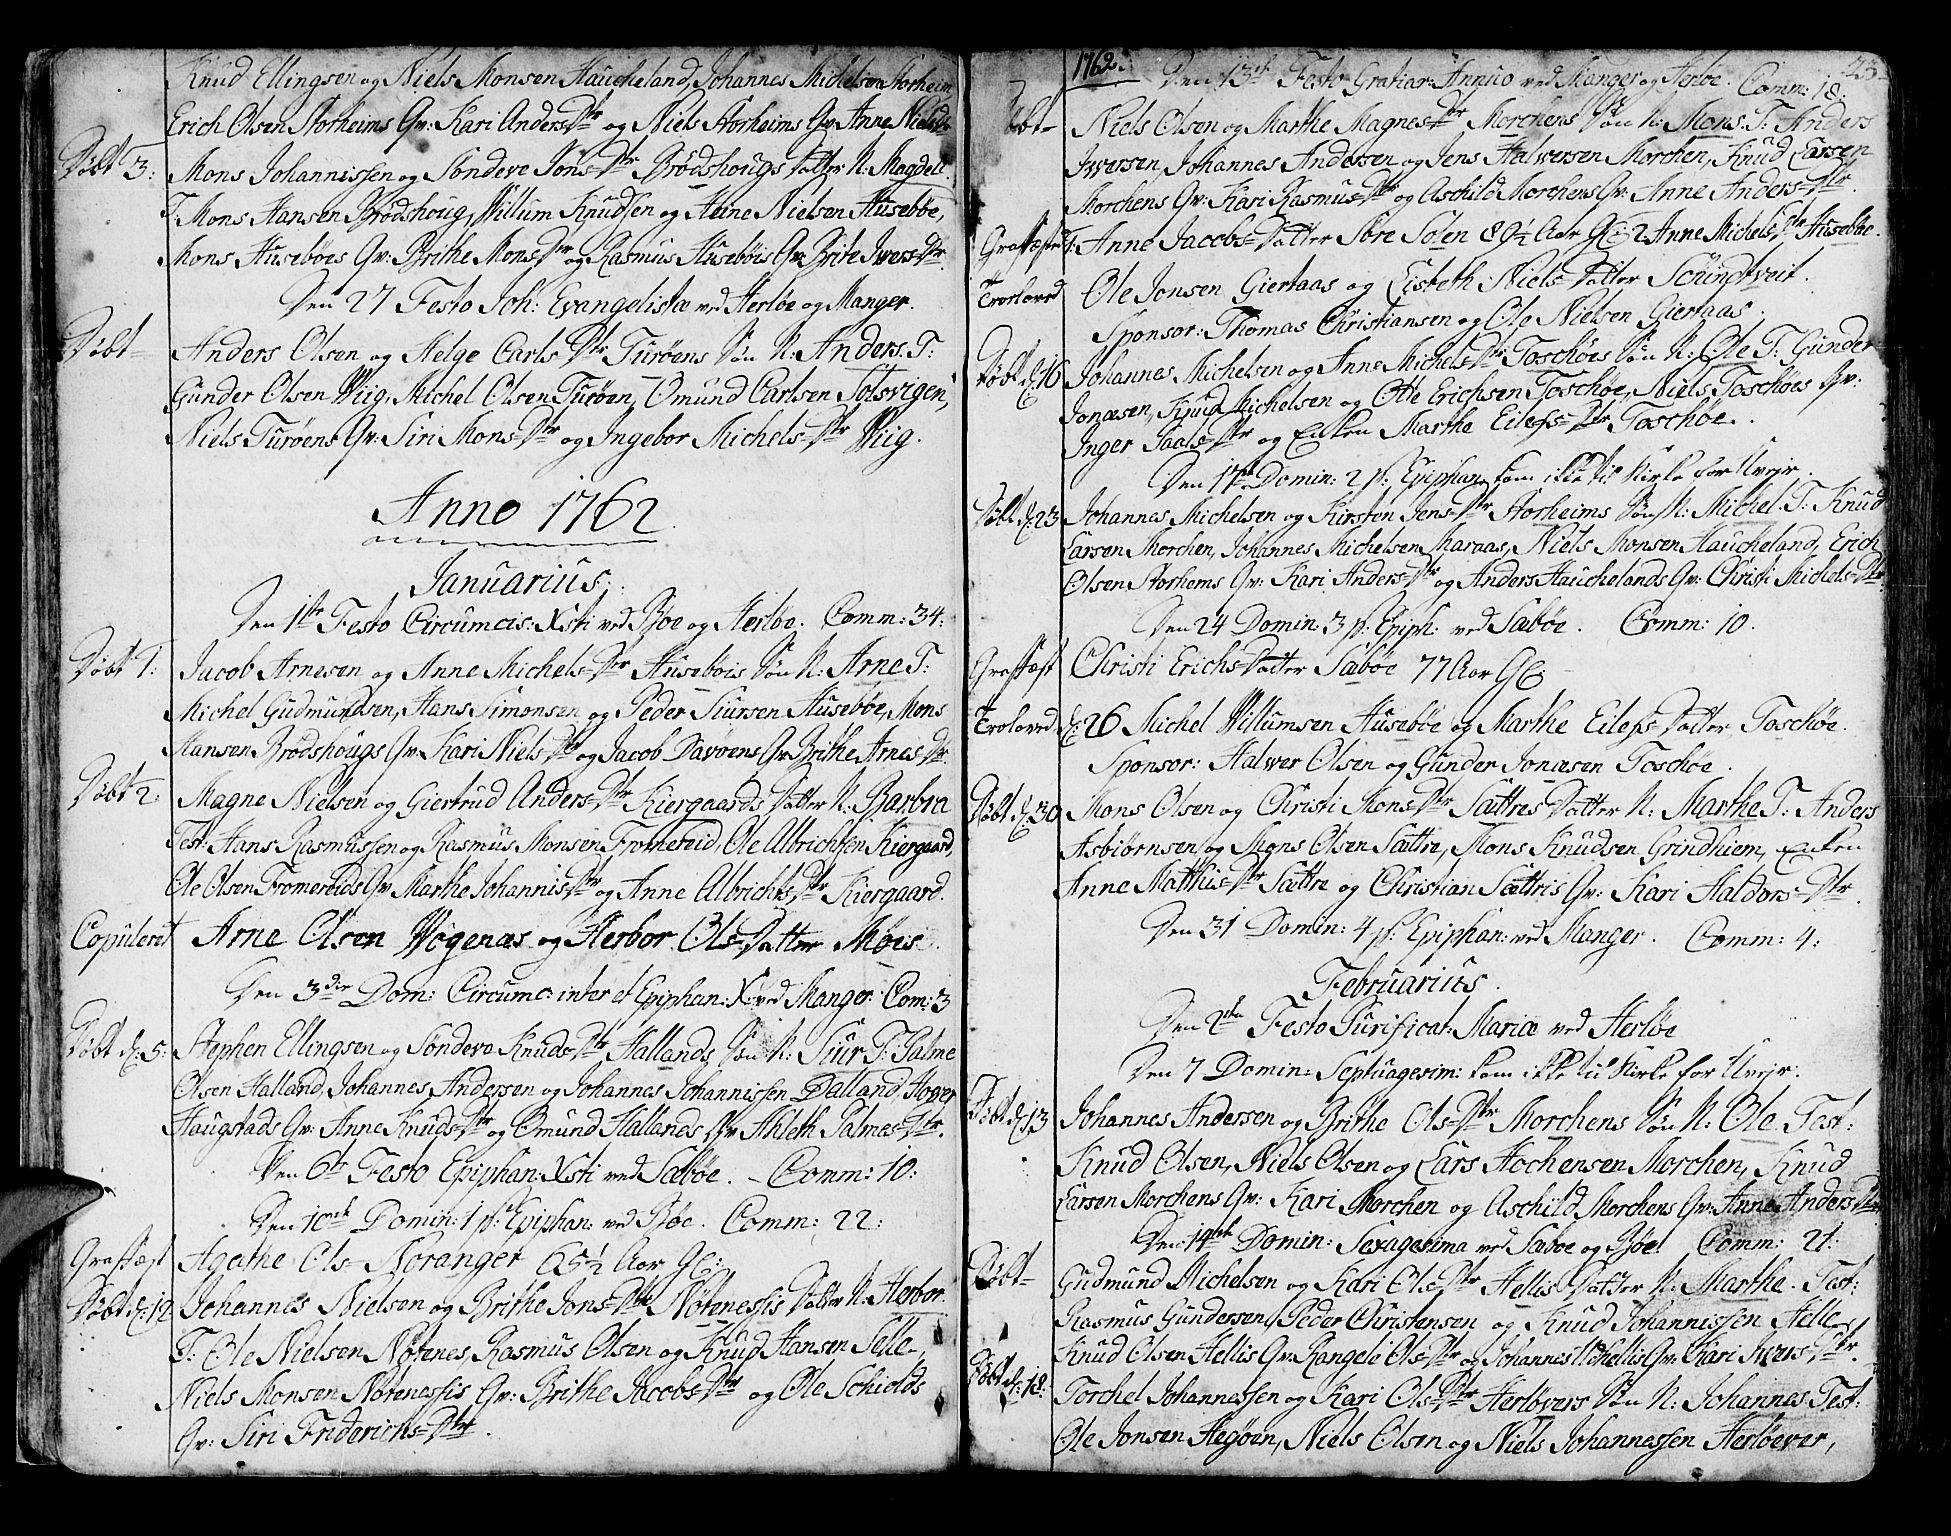 Knud Ellingsen og Niels Monsen Haucheland, Johannes Michelsen Storheim
Erich Olsen Storheims Qv: Kari Anders Dtr og Niels Storheims Qv: Anne Nielsd.
Døbt 3: Mons Johannissen og Søndeve Jons Dtr Brødshougs Datter N: Magdele.
T: Mons Hansen Brødshoug, Willum Knudsen og Heine Nielsen Husebøe,
Mons Husebøes Qv: Brithe Mons Dtr og Rasmus Husebøis Qv: Brite Ivers Dtr.
Den 27 Festo Joh: Evangelistæ ved Herløe og Manger.
Døbt Anders Olsen og Helge Carls Dtr Turøens Søn N: Anders. T:
Gunder Olsen Wiig, Michel Olsen Turøen, Omund Carlsen Solsvigen,
Niels Turøens Qv: Siri Mons Dtr og Ingebor Michels Dtr Wiig.
Anno 1762.
Januarius.
Den 1te Festo Circumcis: Xsti ved Bøe og Herløe. Comm: 34:
Døbt 1: Jacob Arnesen og Anne Michels Dtr Husebøis Søn N: Arne T:
Michel Gudmundsen, Hans Simonsen og Peder Siursen Husebøe, Mons
Hansen Brødshougs Qv: Kari Niels Dtr og Jacob Davøens Qv: Brithe Arnes Dtr.
Døbt 2: Magne Nielsen og Giertrud Anders Dtr Kiergaards Datter N: Barbra
Test: Hans Rasmussen og Rasmus Monsen Fromereid, Ole Albrichtsen Kiergaard,
Ole Olsen Fromereids Qv: Marthe Johannis Dtr og Anne Albrichts Dtr Kiergaard.
Copuleret Arne Olsen Vogenæs og Herbor Ols Datter Møis.
Den 3die Dom: Circumc: inter et Epiphan: X: ved Manger. Com: 3
Døbt d: 5: Stephen Ellingsen og Søndeve Knuds Dtr Hallands Søn N: Siur T: Palme
Olsen Halland, Johannes Andersen og Johannes Johannissen Dalland, Hover
Haugstads Qv: Anne Knuds Dtr og Omund Hallands Qv: Ahleth Palmes Dtr.
Den 6te Festo Epiphan: Xsti ved Sæbøe. Comm: 10:
Den 10de Domin: 1 p: Epiphan: ved Bøe. Comm: 22:
Graffæst Agathe Ols Noranger 65½ Aar Gl:
Døbt d: 12 Johannes Nielsen og Brithe Jons Dtr Nøtenessis Datter N: Herbor.
T: Ole Nielsen Nøtenes, Rasmus Olsen og Knud Hansen Selle,
Niels Monsen Nøtenessis Qv: Brithe Jacobs Dtr og Ole Schiolds
Qv: Siri Friderichs Dtr.
1762. 23
Den 13de Festo Gratiar: Annuo ved Manger og Herløe. Comm: 18:
Døbt Niels Olsen og Marthe Magnes Dtr Morchens Søn N: Mons. T: Anders
Iversen, Johannes Andersen og Jens Halversen Morchen, Knud Larsen
Morchens Qv: Kari Rasmus Dtr og Aschild Morchens Qv: Anne Anders Dtr.
Grafæstet: Anne Jacobs Datter Søre Solen 89½ Aar Gl: 2 Anne Michels Dtr Husebøe.
Troloved Ole Jonsen Giertaas og Lisbeth Niels Datter Scundtveit.
Sponsor: Thomas Christiansen og Ole Nielsen Giertaas.
Døbt d: 16 Johannes Michelsen og Anne Michels Dtr Toschøes Søn N: Ole T: Gunder
Jonæsen, Knud Michelsen og Otte Erichsen Toschøe, Niels Toschøes Qv:
Inger Paals Dtr og Enken Marthe Eilefs Dtr Toschøe.
Den 17de Domin: 2 p: Epiphan: kom ikke til Kirke for Uvejr.
Døbt d: 23 Johannes Michelsen og Kirsten Jens Dtr Storheims Søn N: Michel T: Knud
Larsen Morchen, Johannes Michelsen Maraas, Niels Monsen Haucheland, Erich
Olsen Storhems Qv: Kari Anders Dtr og Anders Hauchelands Qv: Christi Michels Dtr
Den 24 Domin: 3 p: Epiph: ved Sæbøe. Comm: 10.
Grafæst Christi Erichs Datter Sæbøe 77 Aar Gl:
Trolovet d: 26 Michel Willumsen Husebøe og Marthe Eilefs Datter Toschøe.
Sponsor: Halver Olsen og Gunder Jonæsen Toschøe.
Døbt d: 30 Mons Olsen og Christi Mons Dtr Sættres Datter N: Marthe T: Anders
Asbiørnsen og Mons Olsen Sættre, Mons Knudsen Grindhiem, Enken
Anne Matthis Dtr Sættre og Christian Sættris Qv: Kari Haldors Dtr.
Den 31 Domin: 4 p: Epiphan: ved Manger. Comm: 4:
Februarius.
Den 2den Festo Purificat: Mariæ ved Herløe
Den 7 Domin: Septuagesim: kom ikke til Kirke for Uvejr.
Døbt d: 13 Johannes Andersen og Brithe Ols Dtr Morchens Søn N: Ole. Test:
Knud Olsen, Niels Olsen og Lars Hochensen Morchen, Knud
Larsen Morchens Qv: Kari Morchen og Aschild Morchens Qv: Anne Anders Dtr
Den 14de Domin: Sexagesima ved Sæbøe og Bøe. Comm: 21:
Døbt Gudmund Michelsen og Kari Ols Dtr Hellis Datter N: Marthe. Test:
Rasmus Gundersen, Peder Christensen og Knud Johannissen Helle,
Knud Olsen Hellis Qv: Rangele Ols Dtr og Johannes Hellis Qv: Kari Ivers Dtr.
Døbt d: 18: Torchel Johannessen og Kari Ols Dtr Herløvers Søn N: Johannes Test:
Ole Jonsen Hegøen, Niels Olsen og Niels Johannessen Herløever,